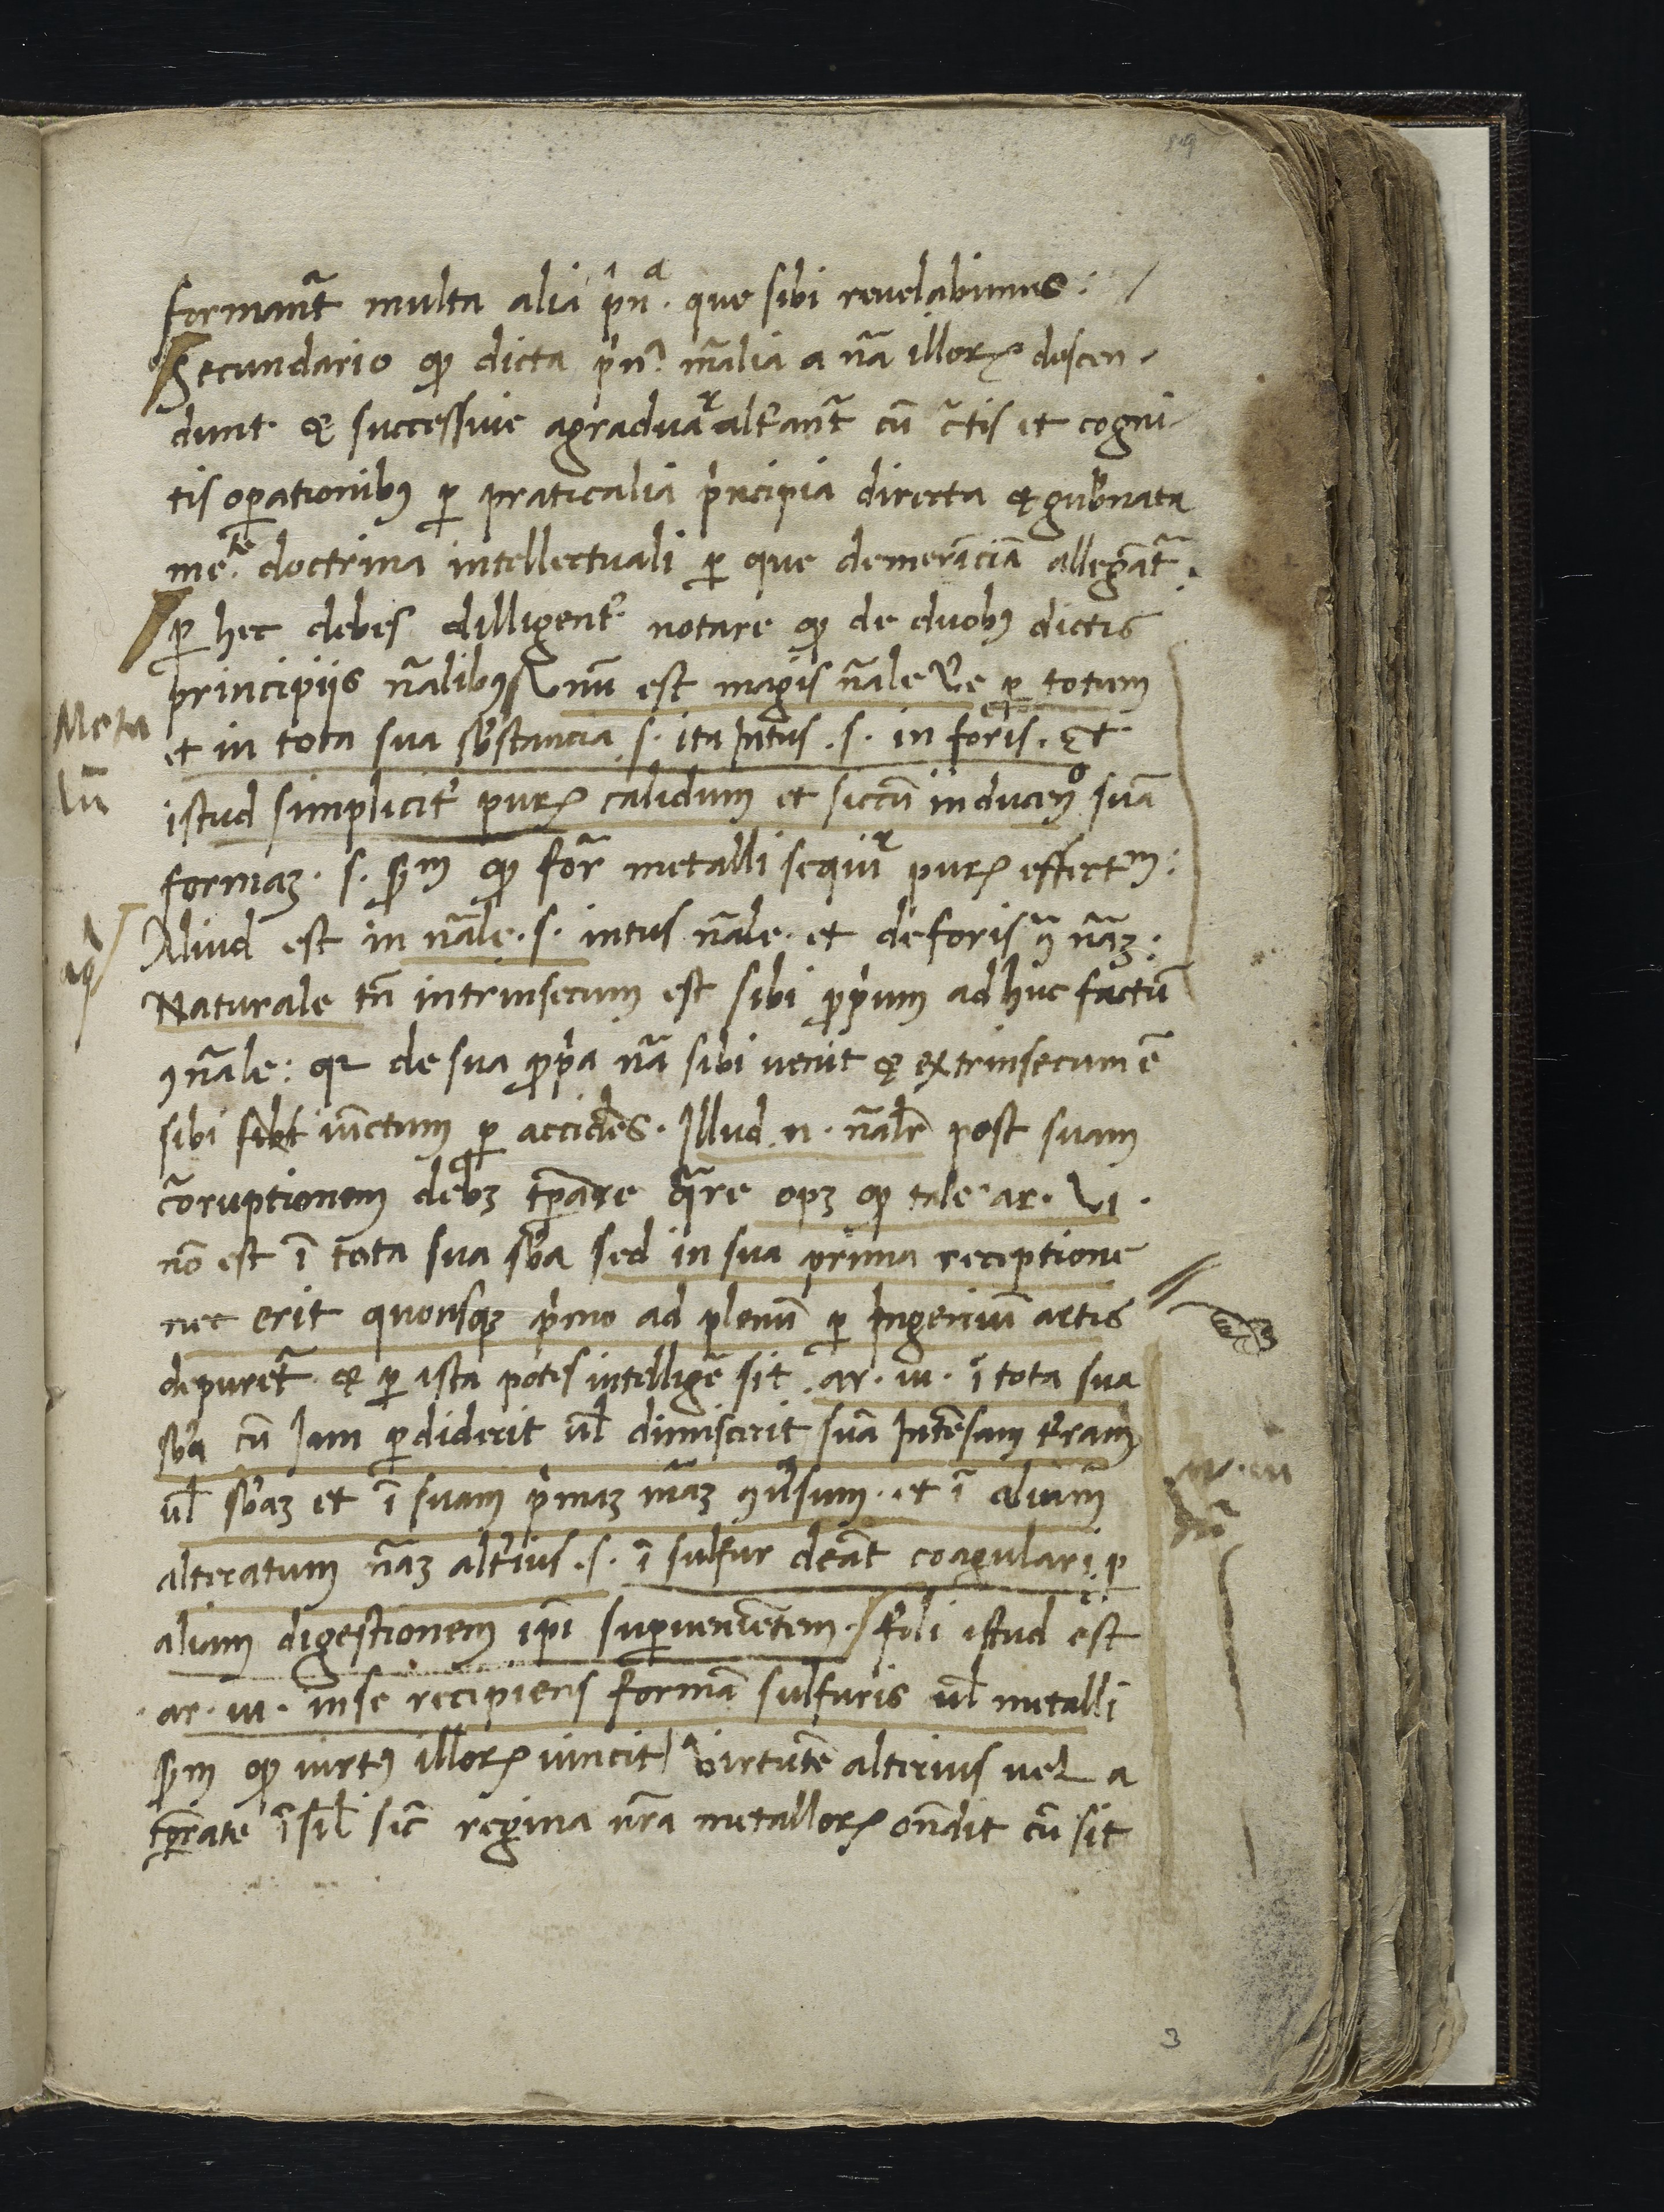 formant̃ multa alia pñᵃ. que sibi revelabimus: /
Secundario ꝙ dicta pñᵃ. ñralia a nã illorꝝ descen-
dunt & successive agraduãʳ alt'ant̃ cũ c̃tis et cogni-
tis oꝑationibꝰ ꝑ praticalia pⁱncipia directa & gub'nata
meᵗᵉ. doctrina intellectuali ꝑ que allegãt̃.
ꝑ hec debes dilligent' notare ꝙ de duobꝰ dictis
principijs ñralibꝰ Unũ est magis ñrale ꝑ totum
et in tota sua sb'stancia .s. ita Intus .s. in foris. Et
istud simplicit' purꝝ calidum et siccũ inducenᵒ suã
formaꝫ. s. ꝙ for̃ metalli sequiʳ purꝝ effectᵐ:
Aliud est in nr̃ale .s. intus nr̃ale. et deforis ꝯ nãꝫ:
Naturale tñ intrinsecum est sibi ꝓpium adhuc factũ
ꝯ nr̃ale: qꝛ de sua ꝓpa nã sibi venit & extrinsecum ẽ
sibi iũctum ꝑ accidẽs. Illud .n. nr̃ale post suam
coruptionem debꝫ tꝑare q̃re opꝫ ꝙ tale ar. vi.
nõ est ĩ tota sua sb'a sed in sua prima receptione
nec erit quousqꝫ pⁱmo ad plenũ ꝑ Ingeniũ artis
depuret̃ & ꝑ ista potes intelligẽ sit ar. vi. ĩ tota sua
sb'a cũ Iam ꝑdiderit ul̃ dimiserit suã Intẽsam t'ram
ul̃ sb'aꝫ et ĩ suam pⁱmaꝫ mãꝫ ꝯv'sum. et ĩ aliam
alteratum nãꝫ alt'ius .s. ĩ sulfur deãt coagulari ꝑ
aliam digestionem ip̃i suꝑvenietem. fili istud est
ar. vi. in se recipiens formã sulfuris ul̃ metalli
ꝙ virtꝰ illorꝝ vincit virtutẽ alterius vel a
tꝑate ĩ sil̃ sic̃ regina nr̃a metallorꝝ oñdit cũ sit
Meta
lũ
ar. vi
3